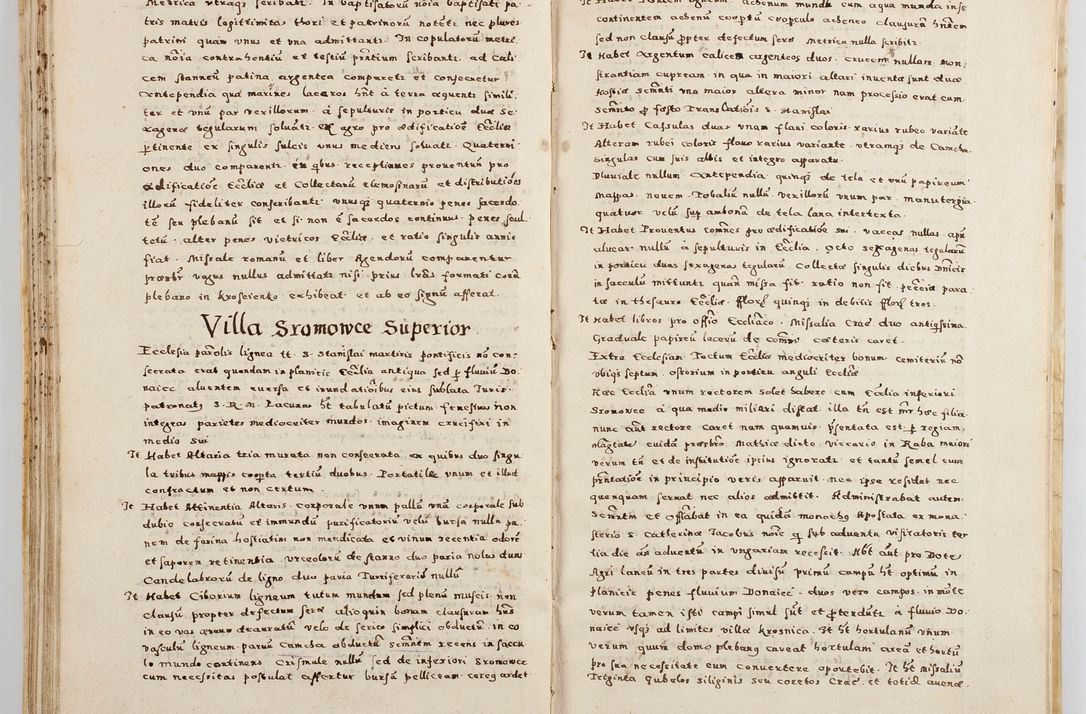 Metrica utrāqȝ scribatī. In baptisatorū nōia baptisati pa
tris matris legittimitas thori et patrinorū notētī nec plures
patrini quam unus et una admittantī. In copulatorū metri
ca nōia contrahentiū et testiū pñtium scribantī. ad Cali
cem stanneū patina argentea comparetī et consecretur
Antependia qua
ter et unū par vexillorum. à sepulturis in porticu duæ Se
xagenæ tegularum solvātī Ex agro pro ædificatiōe Ecc̄liæ
ꝑtinente ex singulis sulcis unus mediens solvatī. Quaterni
ones duo comparentī in qbus receptiones proventūū pro
ædificatiōe Ecc̄liæ et Collectarū elemosinarū et distributiōes
illorū fideliter conscribantī unusqȝ quaternio penes sacerdo
tē seu plebanū sit et si non ē sacerdos continuus penes scul
tetū. alter penes vietricos Ecc̄liæ. et ratio singulis annis
fiat. Missale romanū et liber Agendorū comparentur
præsbtr vagus nullus admittatī nisi prius lrās formati corā
plebano in Krosciento exhibeat et ab eo signū afferat.
Villa Sromowce Superior.
Ecclesia paroēlis lignea tt. S. Stanislai martiris pontificis nō con
secrata erat quondam in planicie Ecc̄lia antiqua sed ꝑ fluviū Do
naiec alventem eversa et inundatiōibus eius sublata Juris
patronatȝ S. R. M. Lacunar hēt tabulatū pictum fenestras non
integras parietes mediocriter mundos. imaginem crucifixi in
medio sui
It Habet Altaria tria murata non consecrata. ex quibus duo singu
la tribus mappis coopta tertiū duobus. Portatile unum et illud
confractum et non certum
It Habet Attinentia Altaris. Corporale unum pallā unā corporale sub
dubio consecratū et immundū purificatoriū velū bursa nulla pa
nem de farina hostiatim non mendicata et vinum recentia odorē
et saporem retinentia. Urceolorū de stanno duo paria nolas duas
Candelabrorū de ligno duo paria Turriferariū nullū
It Habet Ciborium ligneum tutum mundum sed plenū muscis non
clausū propter defectum seræ alioquin bonam clausuram hēns
in eo vas deauratū velo de serico simplici obductū. in eo
vasculū ligneum parvū Camcha obductū semñtm recens in saccu
lo mundo continens Crismale nullū sed de inferiori Sromowce
cum necessitas postulat affertur bursā pelliceam. cereȝ ardet
aebenum mundū cum aqua munda inse
continentem aebenū cooptū coopculo aebeneo clausurā hñtem
sed non clausū ꝓpter defectum seræ Metrica nulla scribitī
It Habet Argentum calices argenteos duos. Crucem nullam Mon
strantiam cupream in qua in maiori altari inventæ sunt duæ
Hostiæ semñti una maior altera minor nam processio erat cum
semñto ꝓ festo Translatiōis S. Stanislai
It Habet Cassulas duas unam flavi coloris varius rubeo variāte
Alteram rubei coloris flavo varius variante. utramqȝ de Camcha
singulas cum suis albis et integro apparatu.
Pluviale nullum Antependia quinqȝ de tela et unū papireum
Mappas novem Tobaliū nullū vexillorū unum par. manutergia
quatuor velū sup ambonā de tela lana intertexta.
It Habet Proventus comnes pro ædificatiōe sui vaccas nullas. apū
alvear nullū à sepulturis in Ecc̄lia. Octo sexagenas tegularū
in porticu duas sexagenas tegularū Collectæ singulis diebus Dnicis
in sacculū mittunti quan missa fit. ratio non fit. pecciæ para
tæ in thesauro Ecc̄liæ. flloȝ quinqȝ in debitis flloȝ tres.
It Habet libros pro offō Ecc̄liāco. Missalia Crac duo antiqssima
Graduale papireū lacerū de cætero caret.
Extra Ecclesiam Tectum Ecc̄liæ mediocriter bonum cemiteriū nō
ubiqȝ septum. ossorium in porticu anguli Ecc̄liæ
Hæc Ecc̄lia unum rectorem solet habere cum Ecc̄lia inferiori
Sromowce à qua medio miliāri distat. illa tn̄ est mr̄ hæc filia.
nunc aūt rectore caret nam quamvis pr̄sentata est ꝑ regiam
mag̅tate cuidā præsbro. Mathiæ dicto. viccario in Raba maiori
verum tn̄ et de institutiōe ipsius ignoratī. et tantū semel cum
pr̄ntatiōe in principio veris apparuit. nec ipse residet nec
quenquam servat nec alios admittit. Administrabat autem
semñtm et offciabat in ea quidā monachȝ Apostata ex mona
sterio S. Catherinæ Jacobus nōie q̄ sub adventu visitatoris ter
tia die an adventū in ungariam recessit. Hēt aūt pro Dote
Agri laneū in tres partes divisū primū campū hēt optimū in
planicie penes fluvium Donaiec. duos vero campos in mōte
verum tamen isti campi simul sūt et ꝑterduntī à fluvio Do
naiec usqȝ ad limites villæ Krosnica. It hēt hortulanū unum
verum quum domo plebanȝ careat hortulani areā et hortū
pro sua necessitate eum convertere oportebit. It hēt missaliū
Treginta qubelos siliginis seu coretos Crac. et totid avenæ.